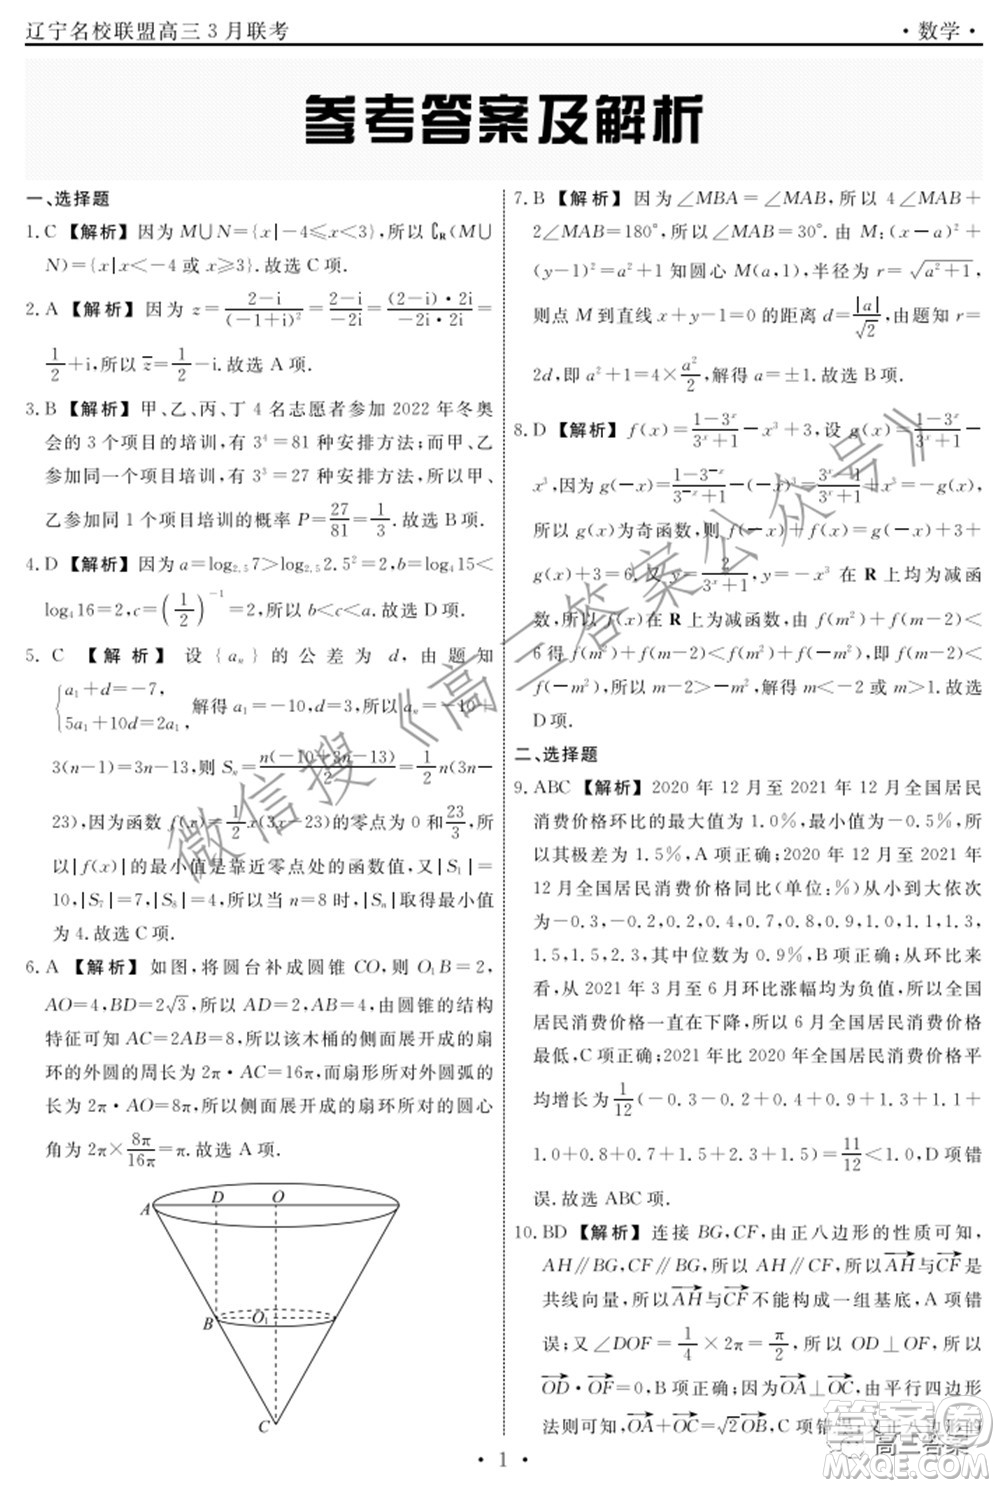 辽宁名校联盟高三 3 月联考
· 数学 ·
参考答案及解析
一、选择题
1. C 【解析】因为 M∪N={x|-4≤x<3},所以 ∁R(M∪
N)={x|x<-4 或 x≥3}.故选 C 项.
2. A 【解析】因为 z=(2-i)/(-1+i)²=(2-i)/(-2i)=((2-i)·2i)/(-2i·2i)=
1/2+i,所以 z̄=1/2-i.故选 A 项.
3. B 【解析】甲、乙、丙、丁 4 名志愿者参加 2022 年冬奥
会的 3 个项目的培训,有 3⁴=81 种安排方法;而甲、乙
参加同一个项目的培训,有 3³=27 种安排方法,所以甲、
乙参加同 1 个项目培训的概率 P=27/81=1/3.故选 B 项.
4. D 【解析】因为 a=log₂.₅7>log₂.₅2.5²=2,b=log₄15<
log₄16=2,c=(1/2)⁻¹=2,所以 b<c<a.故选 D 项.
5. C 【解析】设{aₙ}的公差为 d,由题知
{a₁+d=-7, 5a₁+10d=2a₁, 解得 a₁=-10,d=3,所以 aₙ=-10+
3(n-1)=3n-13,则 Sₙ=n(-10+3n-13)/2=n/2(3n-
23),因为函数 f(x)=1/2x(3x-23)的零点为 0 和 23/3,所
以|f(x)|的最小值是靠近零点处的函数值,又|S₁|=
10,|S₇|=7,|S₈|=4,所以当 n=8 时,|Sₙ|取得最小值
为 4.故选 C 项.
6. A 【解析】如图,将圆台补成圆锥 CO,则 O₁B=2,
AO=4,BD=2√3,所以 AD=2,AB=4,由圆锥的结构
特征可知 AC=2AB=8,所以该木桶的侧面展开成的扇
环的外圆的周长为 2π·AC=16π,而扇形所对外圆弧的
长为 2π·AO=8π,所以侧面展开成的扇环所对的圆心
角为 2π×8π/16π=π.故选 A 项.
A D O
B O₁
C
7. B 【解析】因为∠MBA=∠MAB,所以 4∠MAB+
2∠MAB=180°,所以∠MAB=30°.由 M:(x-a)²+
(y-1)²=a²+1 知圆心 M(a,1),半径为 r=√(a²+1),
则点 M 到直线 x+y-1=0 的距离 d=|a|/√2,由题知 r=
2d,即 a²+1=4×a²/2,解得 a=±1.故选 B 项.
8. D 【解析】f(x)=(1-3ˣ)/(3ˣ+1)-x³+3,设 g(x)=(1-3ˣ)/(3ˣ+1)-
x³,因为 g(-x)=(1-3⁻ˣ)/(3⁻ˣ+1)-(-x)³=(3ˣ-1)/(3ˣ+1)+x³=-g(x),
所以 g(x)为奇函数,则 f(-x)+f(x)=g(-x)+3+
g(x)+3=6.又 y=2/(3ˣ+1),y=-x³ 在 R 上均为减函
数,所以 f(x)在 R 上为减函数,由 f(m²)+f(m-2)<
6 得 f(m²)+f(m-2)<f(m²)+f(-m²),即 f(m-2)<
f(-m²),所以 m-2>-m²,解得 m<-2 或 m>1.故选
D 项.
二、选择题
9. ABC 【解析】2020 年 12 月至 2021 年 12 月全国居民
消费价格环比的最大值为 1.0%,最小值为-0.5%,所
以其极差为 1.5%,A 项正确;2020 年 12 月至 2021 年
12 月全国居民消费价格同比(单位:%)从小到大依次
为-0.3,-0.2,0.2,0.4,0.7,0.8,0.9,1.0,1.1,1.3,
1.5,1.5,2.3,其中位数为 0.9%,B 项正确;从环比来
看,从 2021 年 3 月至 6 月环比涨幅均为负值,所以全国
居民消费价格一直在下降,所以 6 月全国居民消费价格
最低,C 项正确;2021 年比 2020 年全国居民消费价格平
均增长为 1/12(-0.3-0.2+0.4+0.9+1.3+1.1+
1.0+0.8+0.7+1.5+2.3+1.5)=11/12<1.0,D 项错
误.故选 ABC 项.
10. BD 【解析】连接 BG,CF,由正八边形的性质可知,
AH∥BG,CF∥BG,所以 AH∥CF,所以AH→与CF→是
共线向量,所以AH→与CF→不能构成一组基底,A 项错
误;又∠DOF=1/4×2π=π/2,所以 OD⊥OF,所以
OD→·OF→=0,B 项正确;因为OA→⊥OC→,由平行四边形
法则可知,OA→+OC→=√2OB→,C 项错误;又正八边形的
· 1 ·
微信搜《高三答案公众号》
答案圈
高三答案